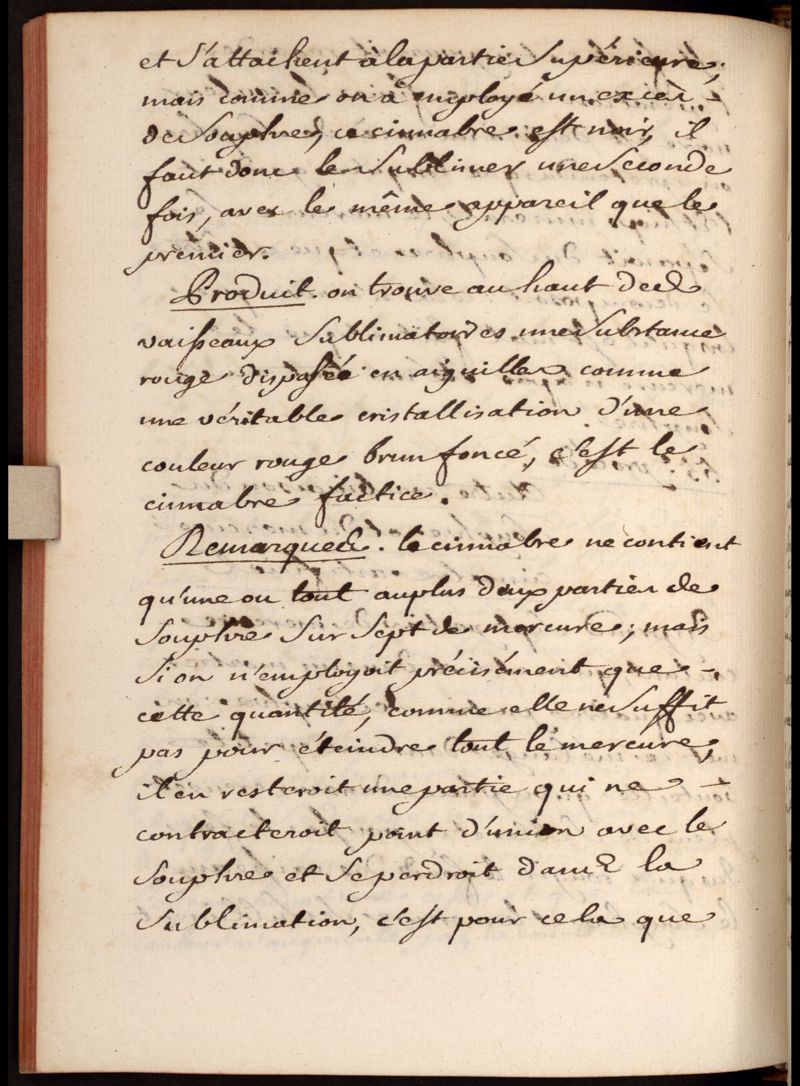 et s'attachent à la partie supérieure,
mais comme on a employé un excès -
de souphre, ce cinnabre est noir, il
faut donc le sublimer une seconde
fois, avec le même appareil que le
premier.
Produit. on trouve au haut des
vaisseaux sublimatoires une substance
rouge disposée en aiguilles comme
une véritable cristallisation d'une
couleur rouge brun foncé, c'est le
cinnabre factice.
Remarques. le cinnabre ne contient
qu'une ou tout auplus deux parties de
souphre sur sept de mercure; mais
si on n'employoit précisément que -
cette quantité, comme elle ne suffit
pas pour éteindre tout le mercure,
il en resteroit une partie qui ne -
contracteroit point d'union avec le
souphre et se perdroit dans la
sublimation, c'est pour cela que